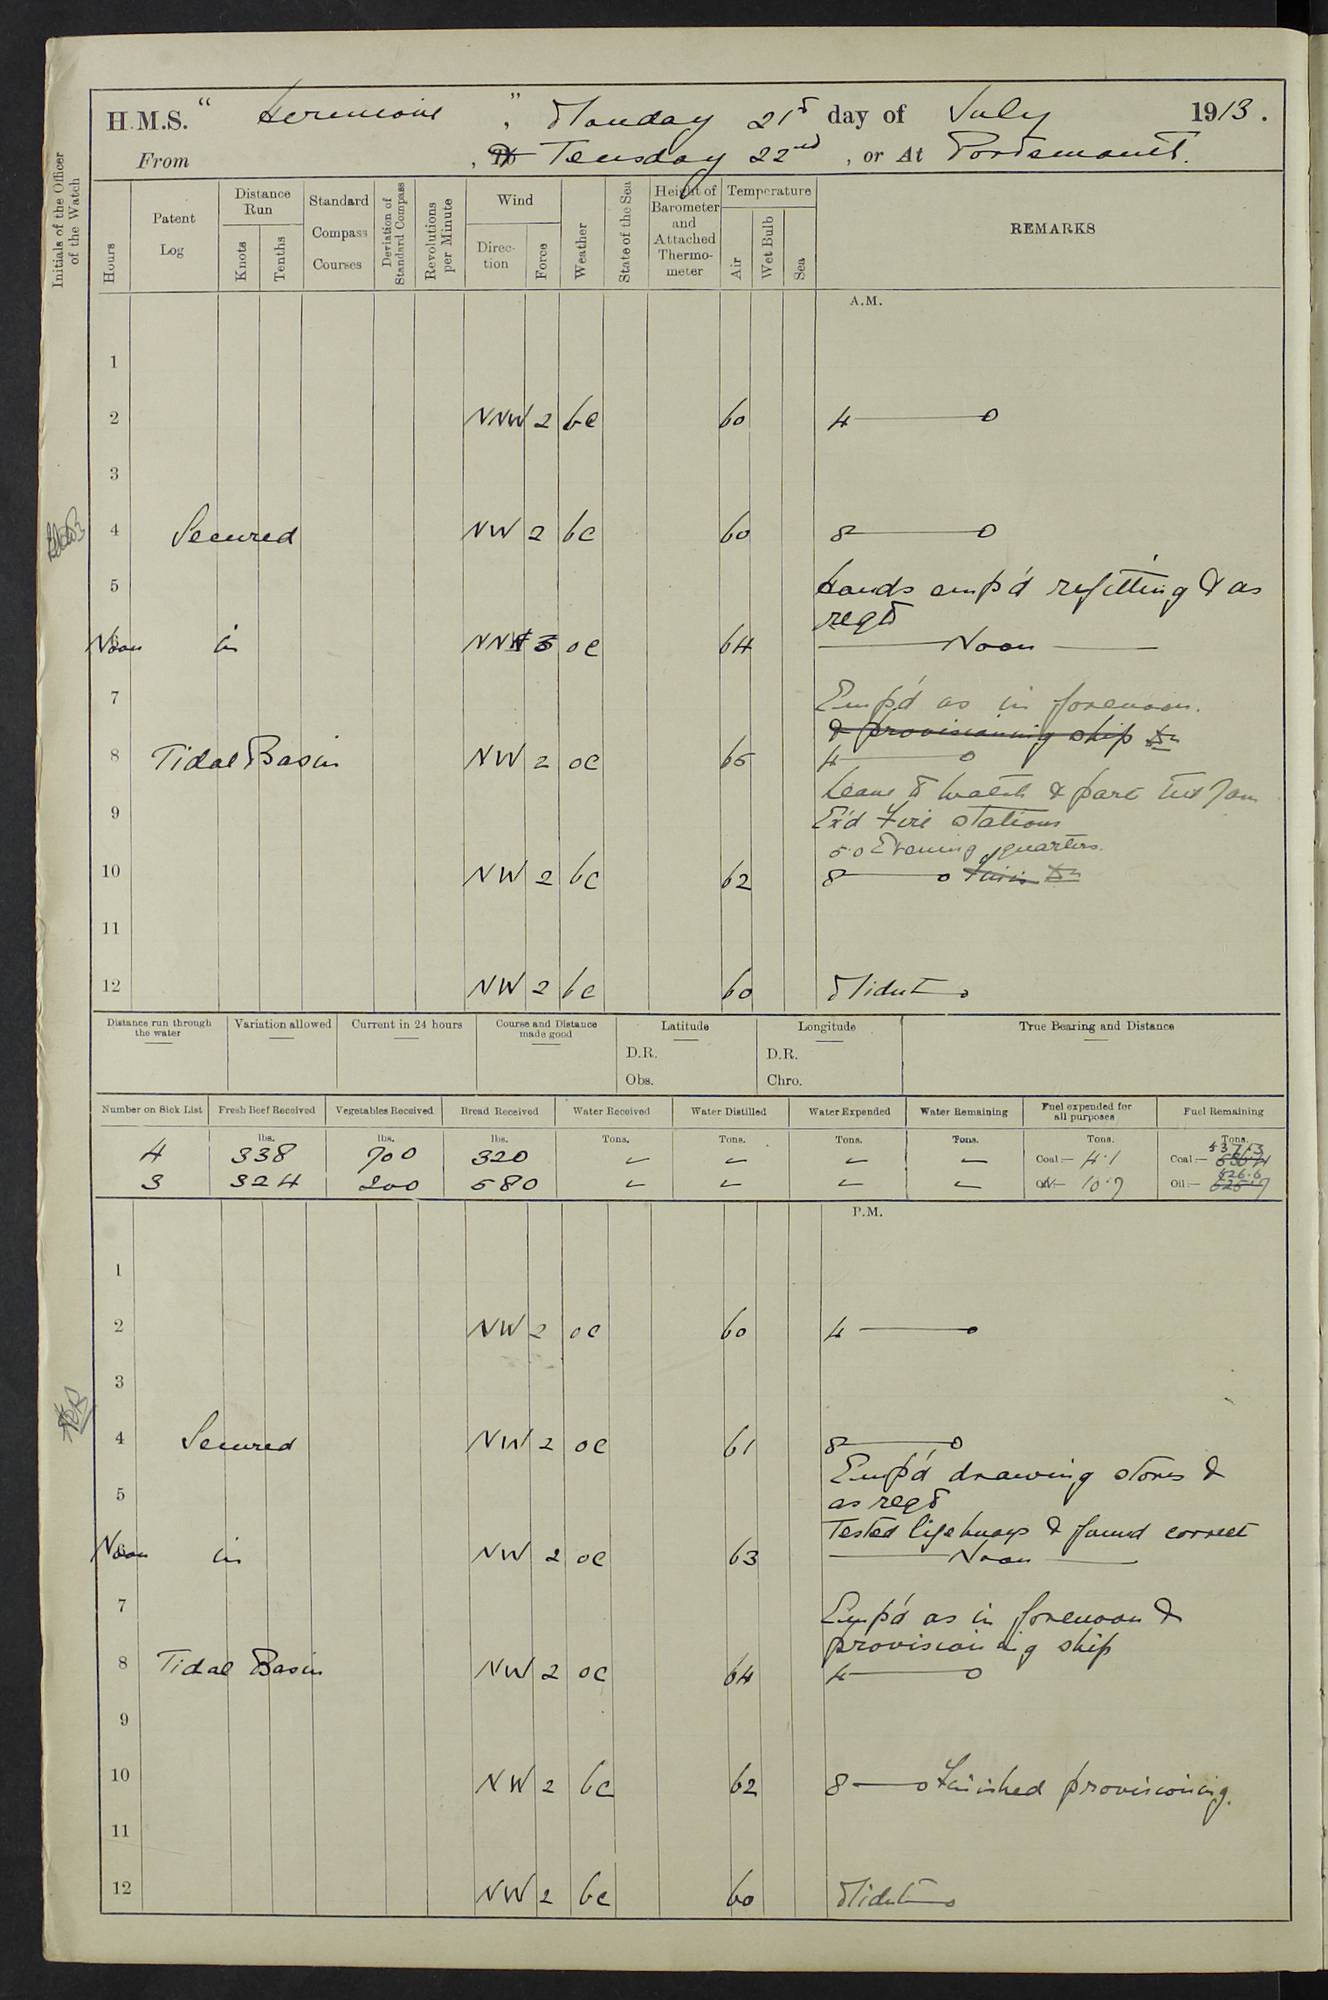 H.M.S. “ Hermione ”, Monday 21st day of July 1913.
From , To Teusday 22nd , or At Portsmouth.
Initials of the Officer of the Watch
Hours
Patent Log
Distance Run
Knots
Tenths
Standard Compass Courses
Deviation of Standard Compass
Revolutions per Minute
Wind
Direction
Force
Weather
State of the Sea
Height of Barometer and Attached Thermometer
Temperature
Air
Wet Bulb
Sea
REMARKS
A.M.
1
2 NNW 2 bc 60 4
3
4 Secured NW 2 bc 60 8
5 Hands emp'd refitting & as
reqd
Noon in NNW 3 oc 64 Noon
7 Emp'd as in forenoon.
& provisioning ship
8 Tidal Basin NW 2 oc 65 4
Leave to watch & part till 7am
9 Ex'd Fire stations
5.0 Evening quarters.
10 NW 2 bc 62 8
11
12 NW 2 bc 60 Midnt
Distance run through the water
Variation allowed
Current in 24 hours
Course and Distance made good
Latitude
D.R.
Obs.
Longitude
D.R.
Chro.
True Bearing and Distance
Number on Sick List Fresh Beef Received Vegetables Received Bread Received Water Received Water Distilled Water Expended Water Remaining Fuel expended for all purposes Fuel Remaining
lbs. lbs. lbs. Tons. Tons. Tons. Tons. Tons. Tons.
4 338 700 320 – – – – Coal:— 4.1 Coal:— 537.3
3 324 200 580 – – – – Oil:— 10.7 Oil:— 526.6
P.M.
1
2 NW 2 oc 60 4
3
4 Secured NW 2 oc 61 8
Emp'd drawing stores &
5 as reqd
Tested lifebuoys & found correct
Noon in NW 2 oc 63 Noon
7 Emp'd as in forenoon &
provisioning ship
8 Tidal Basin NW 2 oc 64 4
9
10 NW 2 bc 62 8 Finished provisioning.
11
12 NW 2 bc 60 Midnt